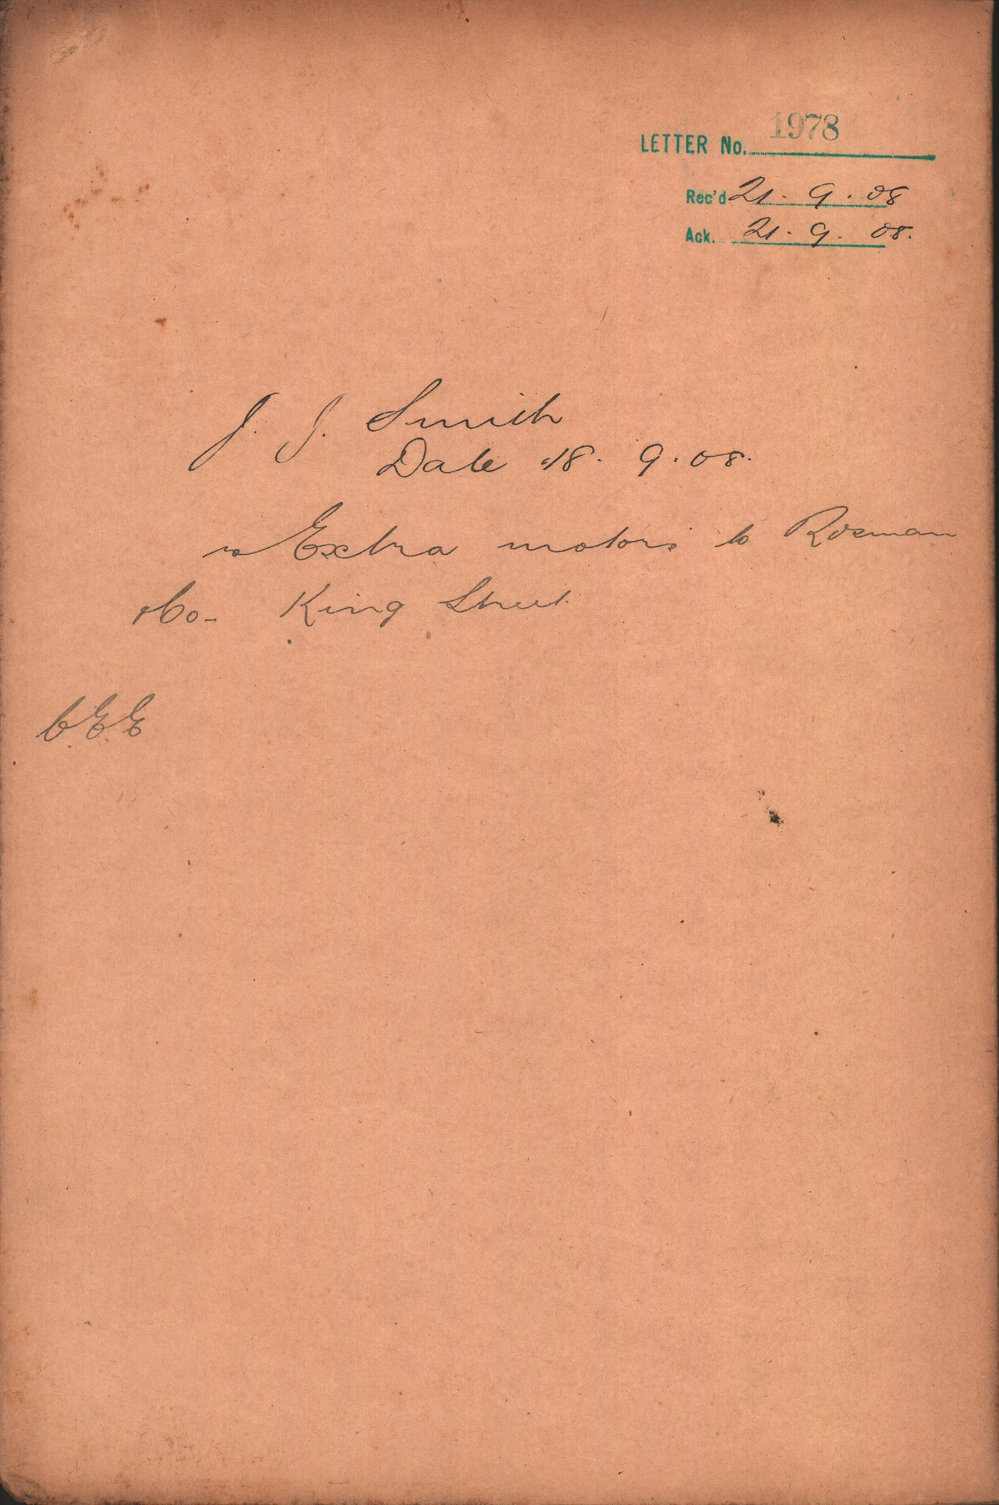 LETTER No. 1978
Rec'd 21. 9. 08
Ack. 21. 9. 08.
J. J. Smith
Date 18. 9. 08.
re Extra motors to Rosman
& Co - King Street
C.E.E